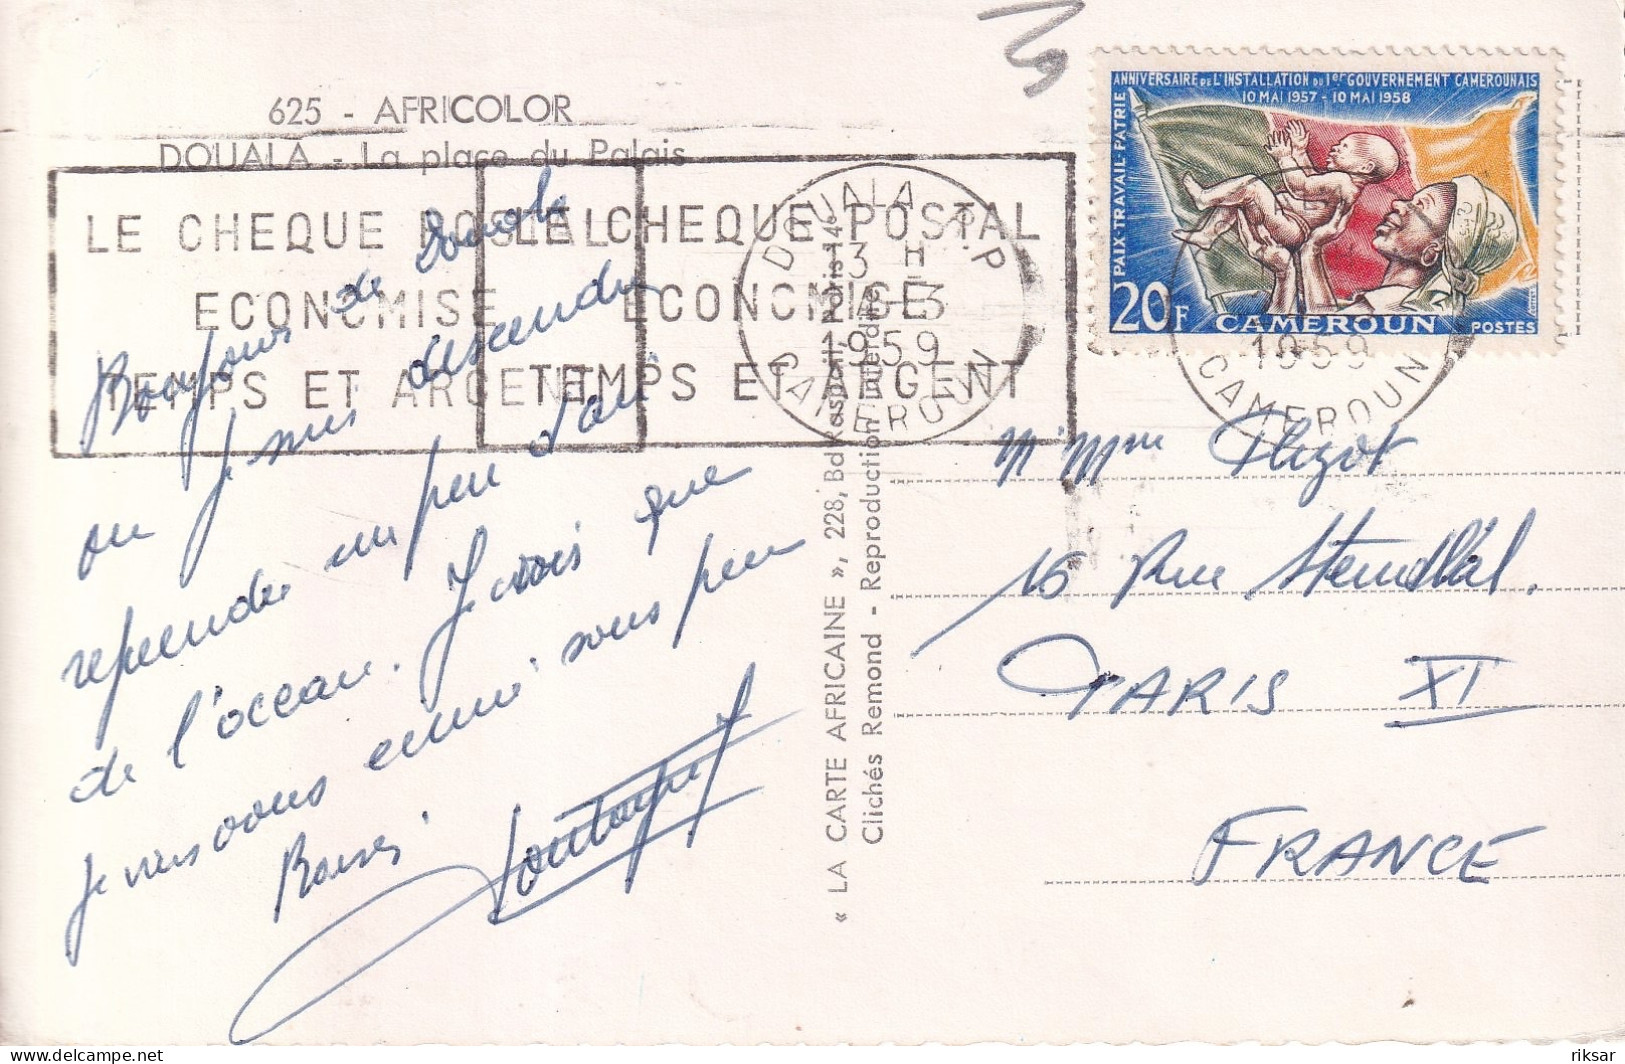 625 - AFRICOLOR
DOUALA - La place du Palais
LE CHEQUE POSTAL
ECONOMISE
TEMPS ET ARGENT
LE CHEQUE POSTAL
ECONOMISE
TEMPS ET ARGENT
DOUALA R.P
13 H
4-3
1959
CAMEROUN
ANNIVERSAIRE DE L'INSTALLATION DU 1er GOUVERNEMENT CAMEROUNAIS
10 MAI 1957 - 10 MAI 1958
PAIX-TRAVAIL-PATRIE
20F CAMEROUN POSTES
1959
CAMEROUN
Bonjour de Douala
ou je suis descendu
reprendre un peu d'air
de l'océan. Je vois que
je vais vous
peu
Baisers
« LA CARTE AFRICAINE », 228, Bd Raspail, Paris-14e
Clichés Remond - Reproduction interdite
M Mme
16 Rue Stendhal.
PARIS XI
FRANCE
riksar
delcampe.net